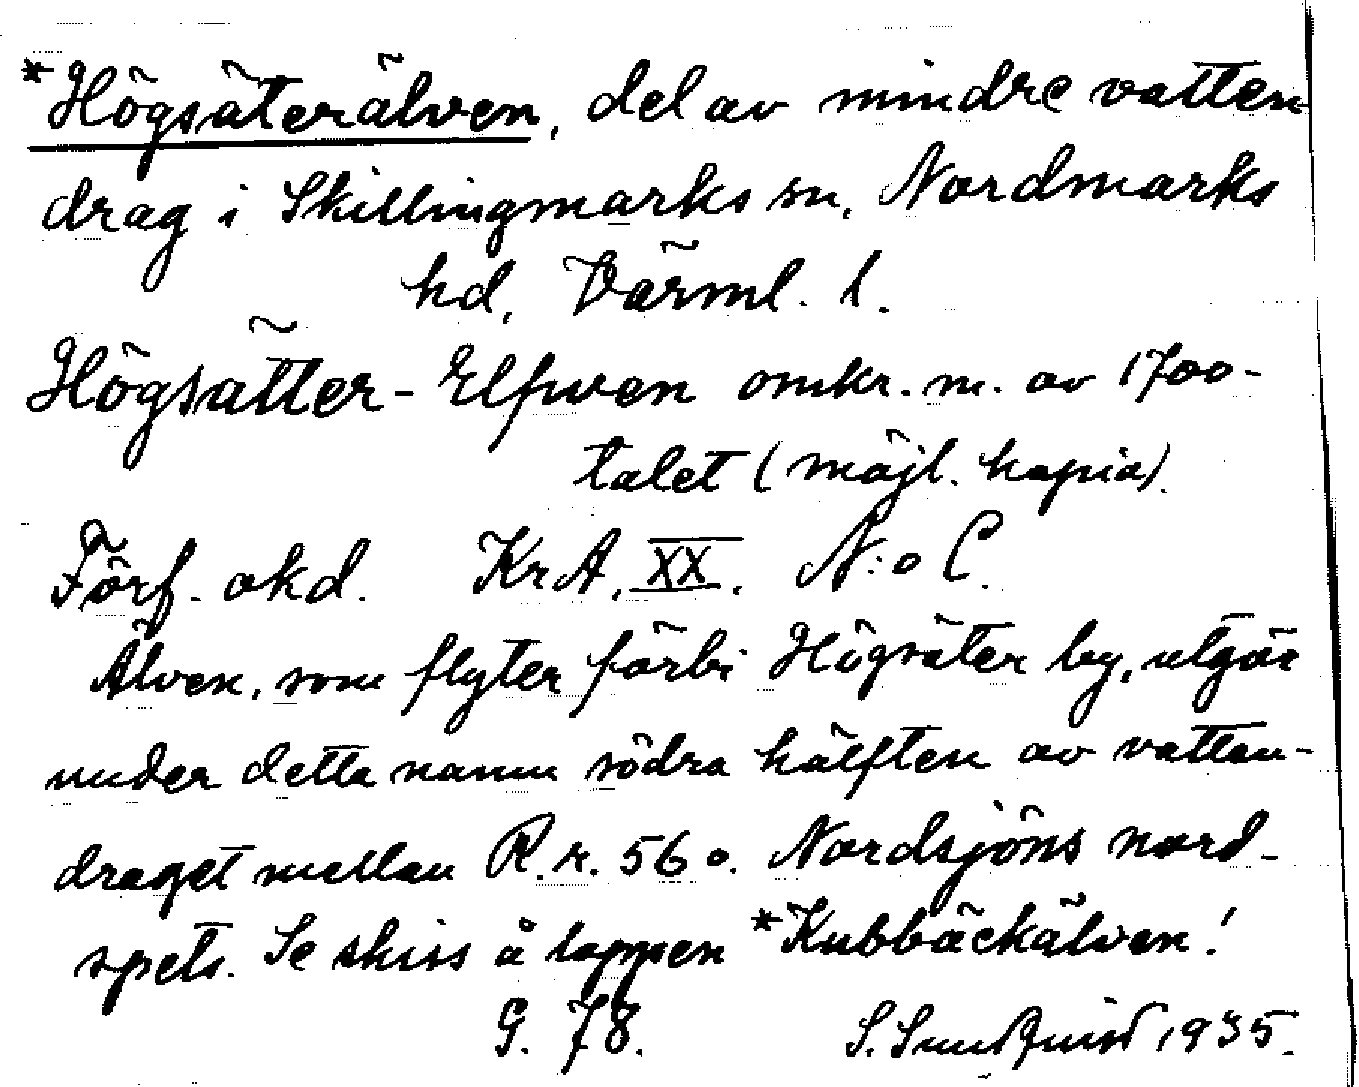 *Högsäterälven, del av mindre vatten-
drag i Skillingmarks sn, Nordmarks
hd, Värml. l.
Högsätter-Elfwen omkr. m. av 1700-
talet (möjl. kopia).
Förf. okd. KrA, XX, N:o C.
Älven, som flyter förbi Högsäter by, utgör
under detta namn södra hälften av vatten-
draget mellan R.r. 56 o. Nordsjöns nord-
spets. Se skiss å lappen *Kubbäckälven!
G. 78. S. Sundquist 1935.